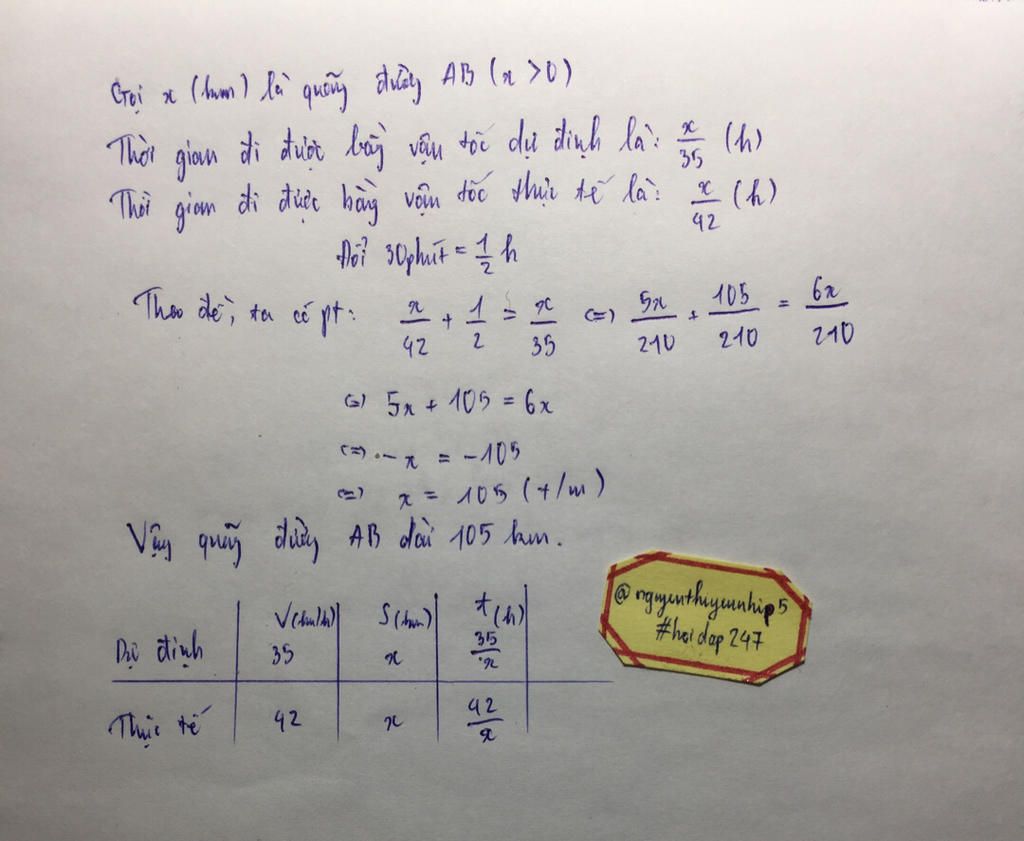 Gọi x (km) là quãng đường AB (x >0)
Thời gian đi được bằng vận tốc dự định là: x/35 (h)
Thời gian đi được bằng vận tốc thực tế là: x/42 (h)
Đổi 30phút = 1/2 h
Theo đề, ta có pt: x/42 + 1/2 = x/35 <=> 5x/210 + 105/210 = 6x/210
<=> 5x + 105 = 6x
<=> -x = -105
<=> x = 105 (t/m)
Vậy quãng đường AB dài 105 km.
V(km/h) S(km) t(h)
Dự định 35 x 35/x
Thực tế 42 x 42/x
@nguyenthiyeunhip5
#hoidap247